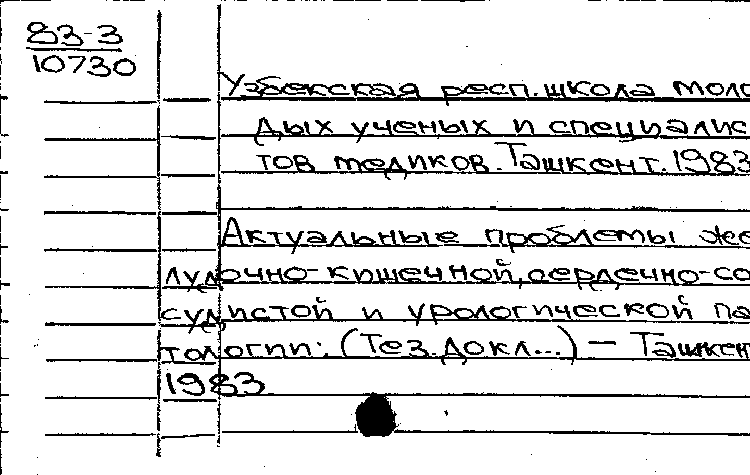 83-3
10730
Узбекская респ. школа моло
дых ученых и специалис
тов медиков. Ташкент. 1983
Актуальные проблемы же
лудочно-кишечной, сердечно-со
судистой и урологической па
тологии: (Тез. докл...) — Ташкен
1983